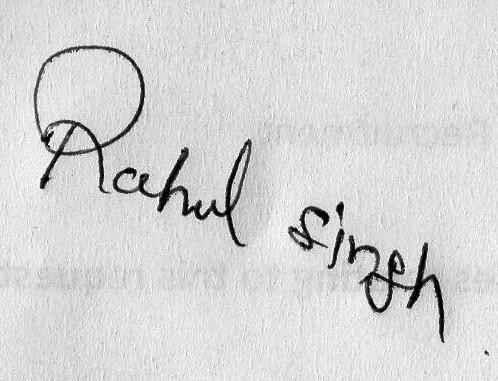 Rahul singh